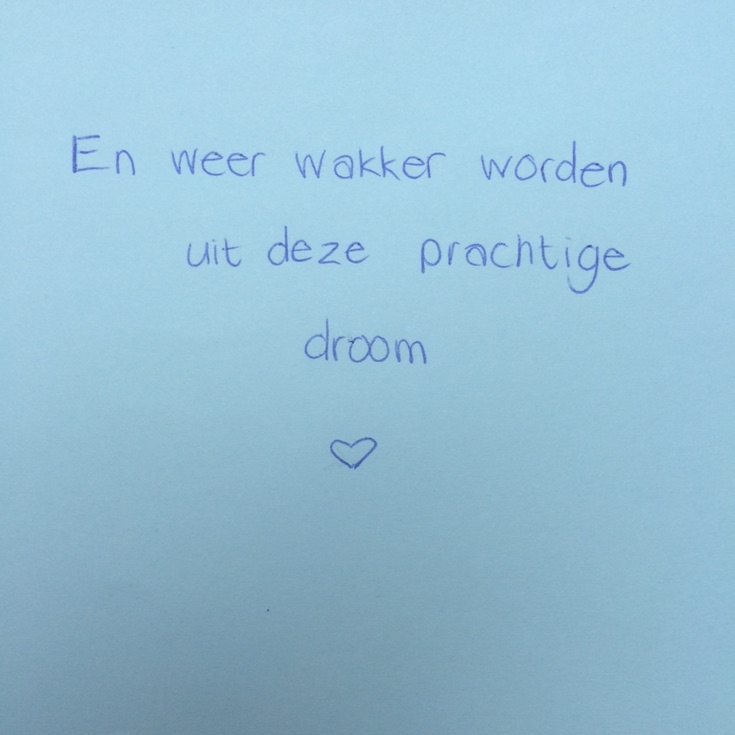 En weer wakker worden
uit deze prachtige
droom